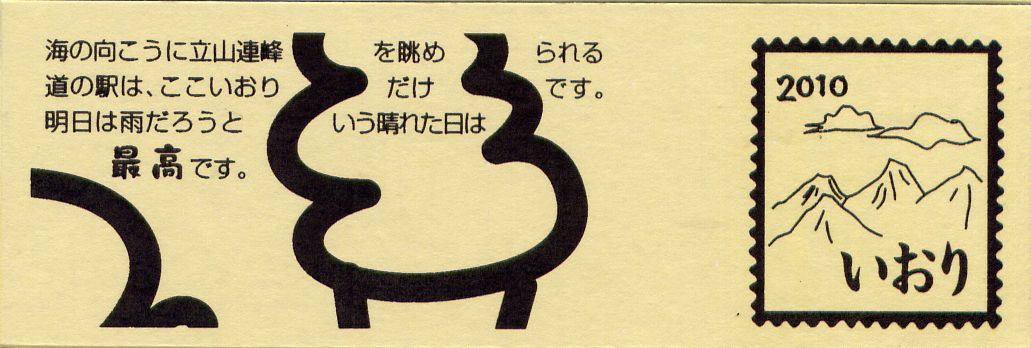 海の向こうに立山連峰を眺められる
道の駅は、ここいおりだけです。
明日は雨だろうという晴れた日は
最高です。
2010
いおり